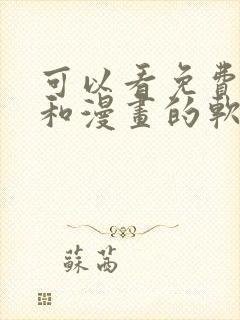 可以看免費
和漫畫的軟
蘇茜